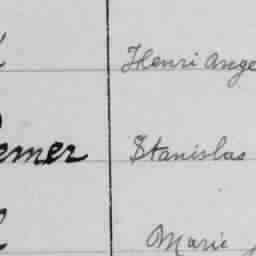 Henri Ange
emer Stanislas
Marie